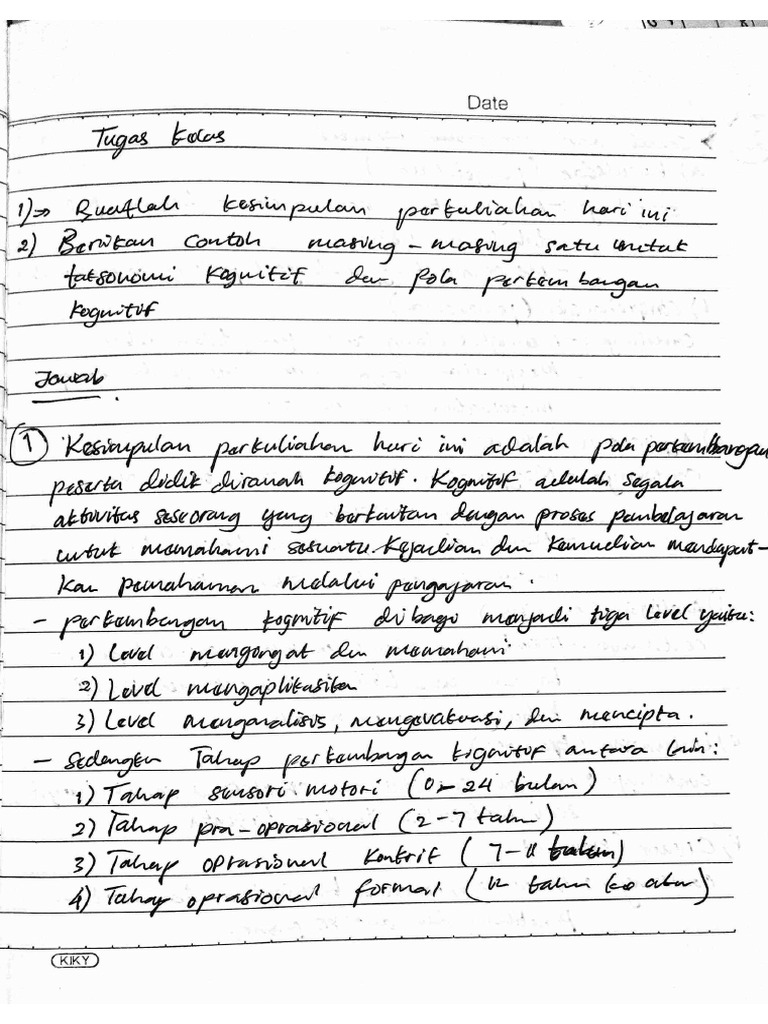 Date
Tugas kelas
1)⇒ Buatlah kesimpulan perkuliahan hari ini
2) Berikan contoh masing-masing satu untuk
taksonomi kognitif dan pola perkembangan
kognitif
Jawab
1 Kesimpulan perkuliahan hari ini adalah pola perkembangan
peserta didik diranah kognitif. Kognitif adalah segala
aktivitas seseorang yang berkaitan dengan proses pembelajaran
untuk memahami sesuatu kejadian dan kemudian mendapat-
kan pemahaman melalui pengajaran.
- perkembangan kognitif dibagi menjadi tiga level yaitu:
1) Level mengingat dan memahami
2) Level mengaplikasikan
3) Level menganalisis, mengevaluasi, dan mencipta.
- Sedangkan Tahap perkembangan kognitif antara lain:
1) Tahap sensori motori (0-24 bulan)
2) Tahap pra-oprasional (2-7 tahun)
3) Tahap oprasional konkrit (7-11 tahun)
4) Tahap oprasional formal (12 tahun ke atas)
KIKY